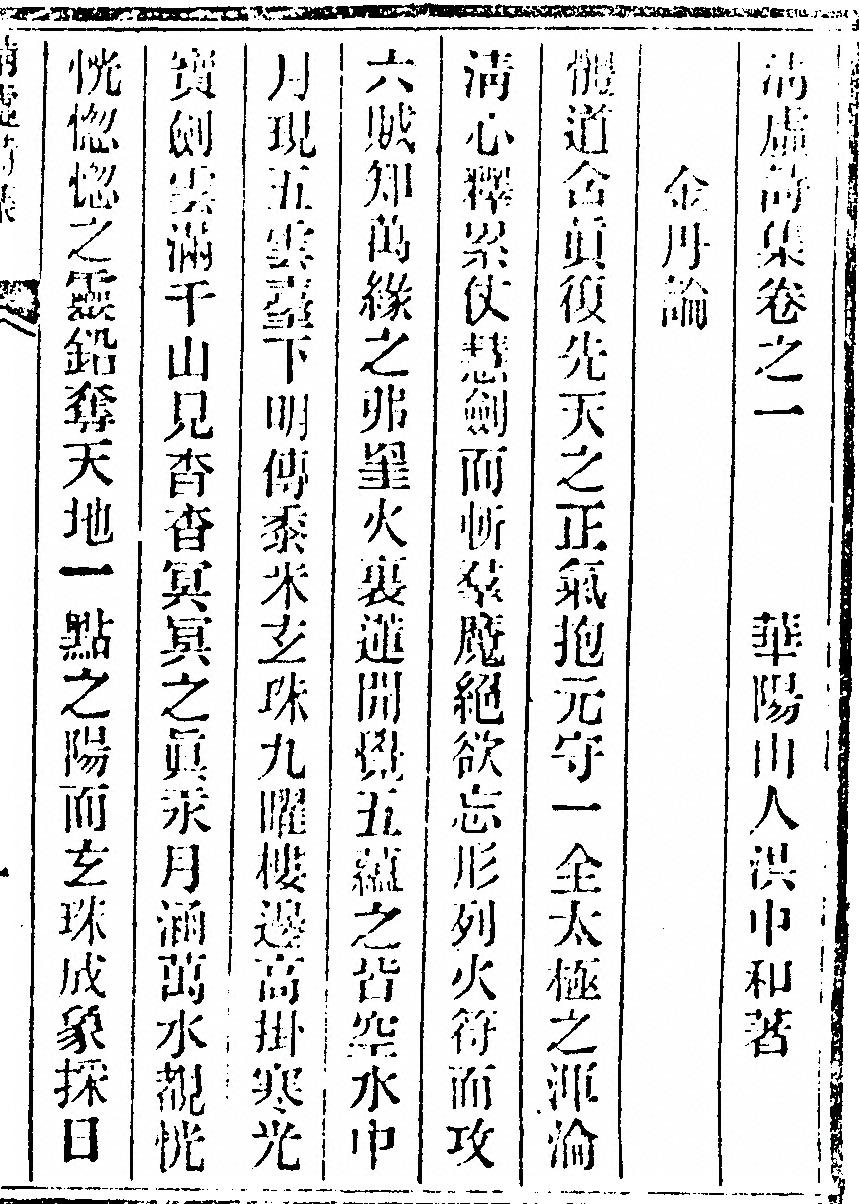 清虛詩集卷之一　華陽山人洪中和著
金丹論
體道含眞復先天之正氣抱元守一全太極之渾淪
淸心釋累仗慧劍而斬羣魔絕欲忘形列火符而攻
六賊知萬緣之弗罣火裏蓮開覺五蘊之皆空水中
月現五雲臺下明傳黍米玄珠九曜樓邊高掛寒光
寶劍雲滿千山見杳杳冥冥之眞汞月涵萬水覩恍
恍惚惚之靈鉛奪天地一點之陽而玄珠成象採日